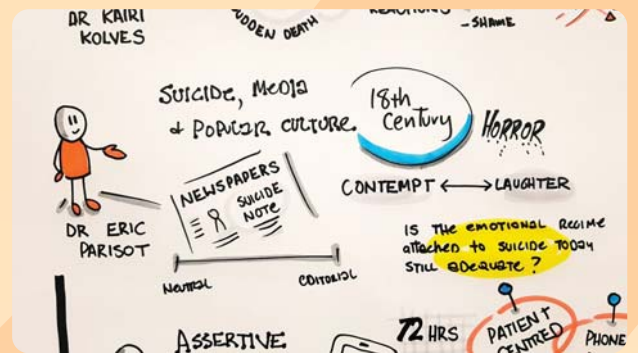 DR KAIRI
KOLVES
SUDDEN DEATH
REACTIONS
- SHAME
SUICIDE, MEDIA
& POPULAR CULTURE
18th
Century
HORROR
CONTEMPT ↔ LAUGHTER
NEWSPAPERS
SUICIDE
NOTE
NEUTRAL
EDITORIAL
DR ERIC
PARISOT
IS THE EMOTIONAL REGIME
attached to SUICIDE TODAY
STILL ADEQUATE?
ASSERTIVE
72 HRS
PATIENT
CENTRED
PHONE